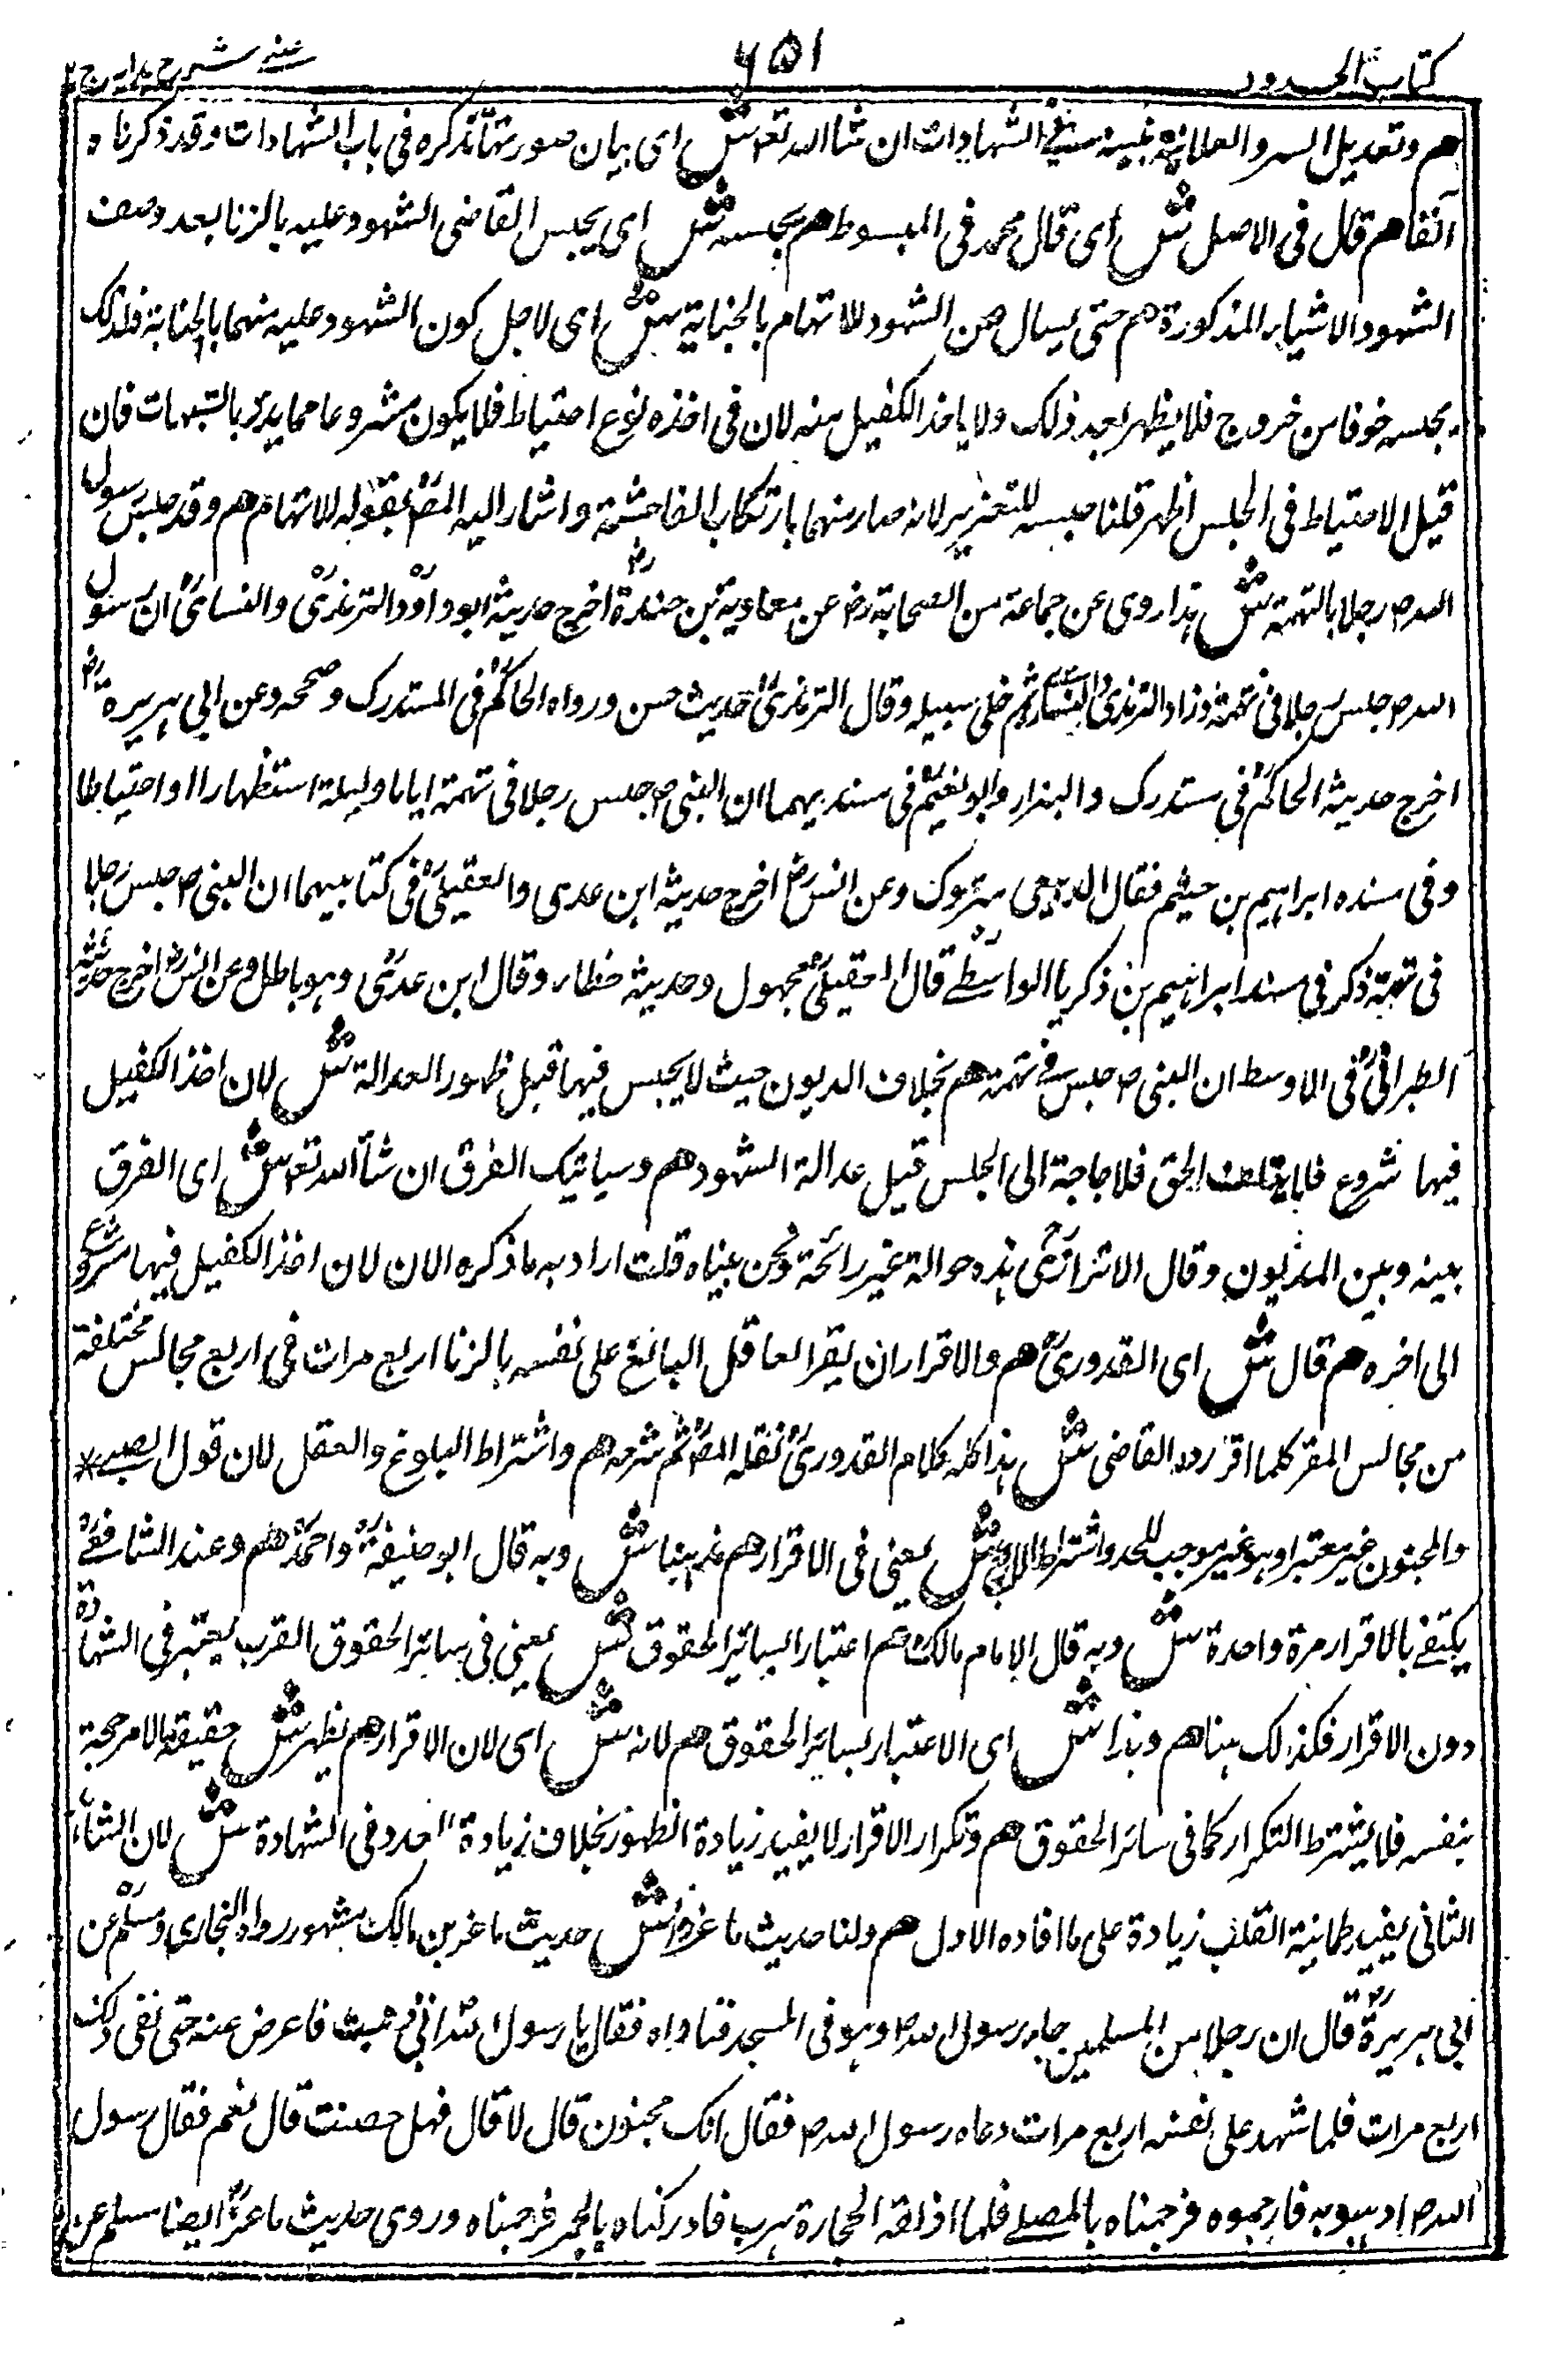 كتاب الحدود
٦٥١
عينے شرح هدايه ج ٢
هم وتعديل السر والعلانية نبينه في الشهادات ان شاالله تعم ش اى بيان صورتها نذكره فى باب الشهادات وقد ذكرناه
آنفا هم قال فى الاصل ش اى قال محمد فى المبسوط هم يحبسه ش اى يحبس القاضى الشهود عليه بالزنا بعد وصف
الشهود الاشياء المذكورة هم حتى يسال عن الشهود للاتهام بالجناية ش اى لاجل كون الشهود عليه متهما بالجناية فلذلك
يحبسه خوفا من خروج فلا يظهر بعد ذلك ولا ياخذ الكفيل منه لان فى اخذه نوع احتياط فلا يكون مشروعا مما يدرء بالشبهات فان
قيل الاحتياط فى الحبس اظهر قلنا حبسه للتعزير لانه صار متهما بارتكاب الفاحشة واشار اليه المصؒ بقوله للاتهام هم وقد حبس رسول
الله ص رجلا بالتهمة ش هذا روى عن جماعة من الصحابة رض عن معاوية بن حيدةؓ اخرج حديثه ابو داودؒ والترمذىؒ والنسائىؒ ان رسول
الله ص حبس رجلا فى تهمة وزاد الترمذىؒ والنسائىؒ ثم خلى سبيله وقال الترمذىؒ حديث حسن ورواه الحاكمؒ فى المستدرك وصححه وعن ابى هريرةؓ
اخرج حديثه الحاكمؒ فى مستدرك والبزار وابو نعيمؒ فى مسنديهما ان النبى ص حبس رجلا فى تهمة اياما وليلة استظهارا واحتياطا
وفى سنده ابراهيم بن خيثم فقال الذهبى متروك وعن انسؓ اخرج حديثه ابن عدى والعقيلىؒ فى كتابيهما ان النبى ص حبس رجلا
فى تهمة ذكر فى سند ابراهيم بن ذكريا الواسطے قال العقيلىؒ مجهول وحديثه خطاء وقال ابن عدىؒ وهو باطل وعن انسؓ اخرج حديثه
الطبرانىؒ فى الاوسط ان النبى ص حبس فے تهمة هم بخلاف الديون حيث لا يحبس فيها قبل ظهور العدالة ش لان اخذ الكفيل
فيها شروع فلا الحق فلا حاجة الى الحبس قبل عدالة الشهود هم وسياتيك الفرق ان شاالله تعم ش اى الفرق
بينه وبين المديون وقال الاترازىؒ هذه حوالة غير رائجة ونحن بيناه قلت اراد به ما ذكره الان لان اخذ الكفيل فيها مشروع
الى اخره هم قال ش اى القدورىؒ هم والاقرار ان يقر العاقل البالغ على نفسه بالزنا اربع مرات فى اربع مجالس مختلفة
من مجالس المقر كلما اقر رده القاضى ش هذا كله كلام القدورىؒ نقله المصؒ ثم شرحه هم واشتراط البلوغ والعقل لان قول الصبے
والمجنون غير معتبر او هو غير موجب للحد واشتراط الاربع ش يعنى فى الاقرار هم مذهبنا ش وبه قال ابو حنيفةؒ واحمدؒ هم وعند الشافعےؒ
يكتفے بالاقرار مرة واحدة ش وبه قال الامام مالكؒ هم اعتبارا لسائر الحقوق ش يعنى فى سائر الحقوق القرب يعتبر فى الشهادة
دون الاقرار فكذلك هنا هم وهذا ش اى الاعتبار بسائر الحقوق هم لانه ش اى لان الاقرار هم يظهر ش حقيقة الامر حجة
بنفسه فلا يشترط التكرار كما فى سائر الحقوق هم وتكرار الاقرار لا يفيد زيادة الظهور بخلاف زيادة العدد فى الشهادة ش لان الشاهد
الثانى يفيد طمانية القلب زيادة على ما افاده الاول هم ولنا حديث ماعزؓ ش حديث ماعز بن مالك مشهور رواه البخارىؒ ومسلمؒ عن
ابى هريرةؓ قال ان رجلا من المسلمين جاء رسول الله ص وهو فى المسجد فناداه فقال يا رسول الله انى زنيت فاعرض عنه حتى ثنى ذلك
اربع مرات فلما شهد على نفسه اربع مرات دعاه رسول الله ص فقال انك مجنون قال لا قال فهل حصنت قال نعم فقال رسول
الله ص اذهبوا به فارجموه فرجمناه بالمصلے فلما اذلقه الحجارة هرب فادركناه بالحجر فرجمناه وروى حديث ماعزؓ ايضا مسلم عن